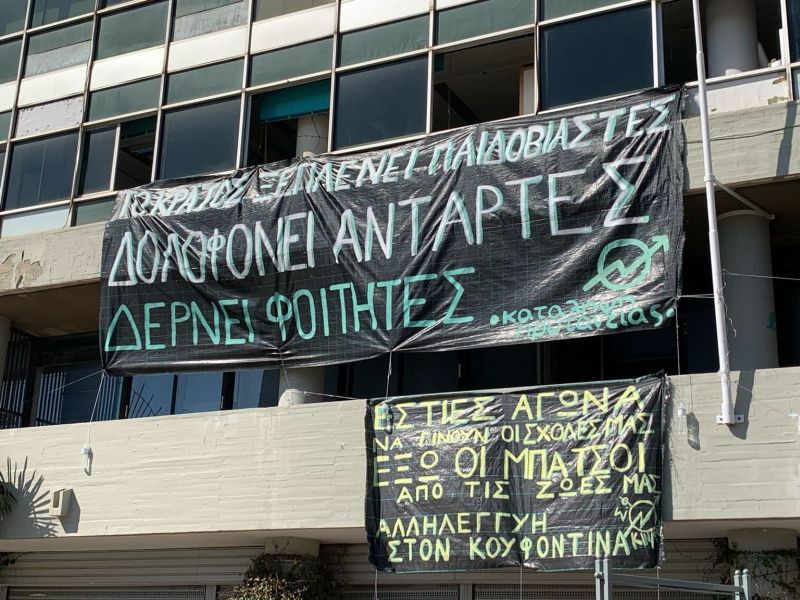 ΤΟ ΚΡΑΤΟΣ ΞΕΠΛΕΝΕΙ ΠΑΙΔΟΒΙΑΣΤΕΣ
ΔΟΛΟΦΟΝΕΙ ΑΝΤΑΡΤΕΣ
ΔΕΡΝΕΙ ΦΟΙΤΗΤΕΣ
•κατάληψη
πρυτανείας•
ΕΣΤΙΕΣ ΑΓΩΝΑ
ΝΑ ΓΙΝΟΥΝ ΟΙ ΣΧΟΛΕΣ ΜΑΣ
ΕΞΩ ΟΙ ΜΠΑΤΣΟΙ
ΑΠΟ ΤΙΣ ΖΩΕΣ ΜΑΣ
ΑΛΛΗΛΕΓΓΥΗ
ΣΤΟΝ ΚΟΥΦΟΝΤΙΝΑ